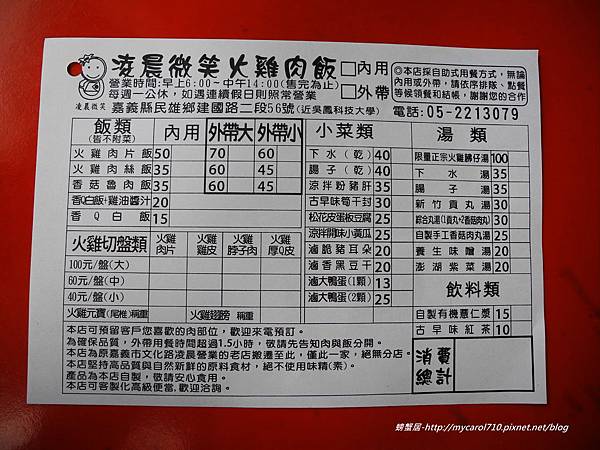 凌晨微笑火雞肉飯 □內用 □外帶
凌晨微笑
營業時間:早上6:00~中午14:00(售完為止)
每週一公休，如遇連續假日則照常營業
嘉義縣民雄鄉建國路二段56號(近吳鳳科技大學)
◎本店採自助式用餐方式，無論
內用或外帶，請依序排隊、點餐
等候領餐和結帳，謝謝您的合作
電話:05-2213079
飯類 內用 外帶大 外帶小
(皆不附菜)
火雞肉片飯 50 70 60
火雞肉絲飯 35 60 45
香菇魯肉飯 35 60 45
香Q白飯+雞油醬汁 20
香Q白飯 15
火雞切盤類 火雞肉片 火雞雞皮 火雞脖子肉 火雞厚Q皮
100元/盤(大)
60元/盤(中)
40元/盤(小)
火雞元寶(尾椎)稱重 火雞翅膀 稱重
小菜類
下水(乾) 40
腸子(乾) 40
涼拌粉豬肝 35
古早味筍干封 30
松花皮蛋板豆腐 25
涼拌開味小黃瓜 25
滷脆豬耳朵 20
滷香黑豆干 20
滷大鴨蛋(1顆) 13
滷大鴨蛋(2顆) 25
湯類
限量正宗火雞佛仔湯 100
下水湯 35
腸子湯 35
新竹貢丸湯 30
綜合丸湯(1貢丸+2香菇肉丸) 30
自製手工香菇肉丸湯 25
養生味噌湯 20
澎湖紫菜湯 20
飲料類
自製有機薏仁漿 15
古早味紅茶 10
消費
總計
本店可預留客戶您喜歡的肉部位，歡迎來電預訂。
為確保品質，外帶用餐時間超過1.5小時，敬請先告知肉與飯分開。
本店為原嘉義市文化路凌晨營業的老店搬遷至此，僅此一家，絕無分店。
本店堅持高品質與自然新鮮的原料食材，絕不使用味精(素)。
產品為本店自製，敬請安心食用。
本店可客製化高級便當,歡迎洽詢。
螃蟹居-http://mycarol710.pixnet.net/blog